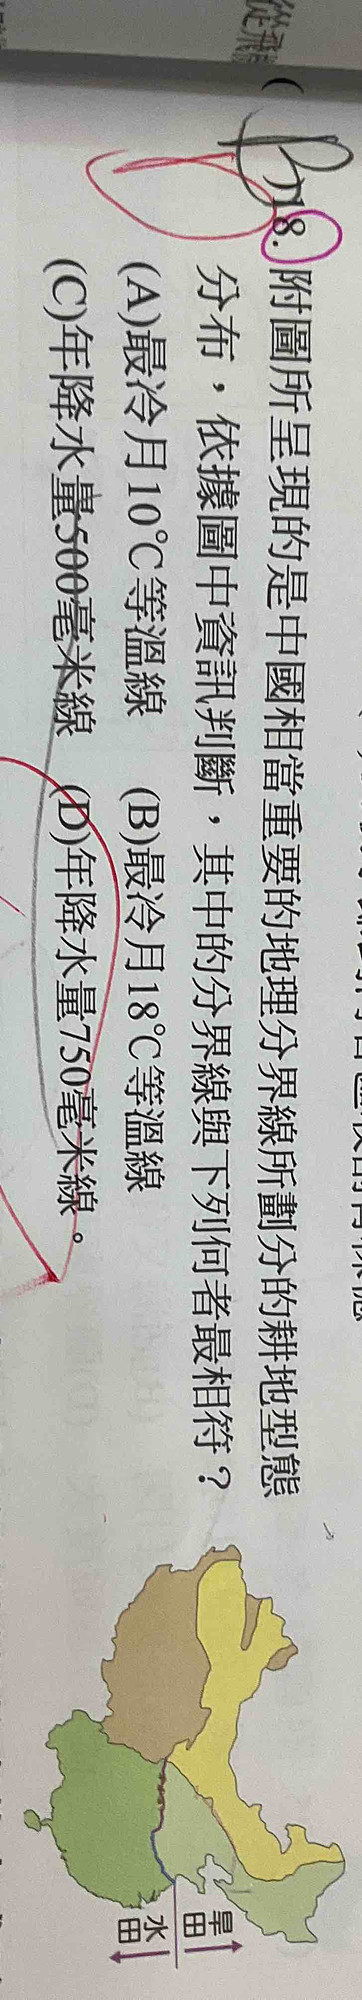 (D)18.附圖所呈現的是中國相當重要的地理分界線所劃分的耕地型態
分布，依據圖中資訊判斷，其中的分界線與下列何者最相符？
(A)最冷月10°C等溫線 (B)最冷月18°C等溫線
(C)年降水量500毫米線 (D)年降水量750毫米線。
旱田
水田